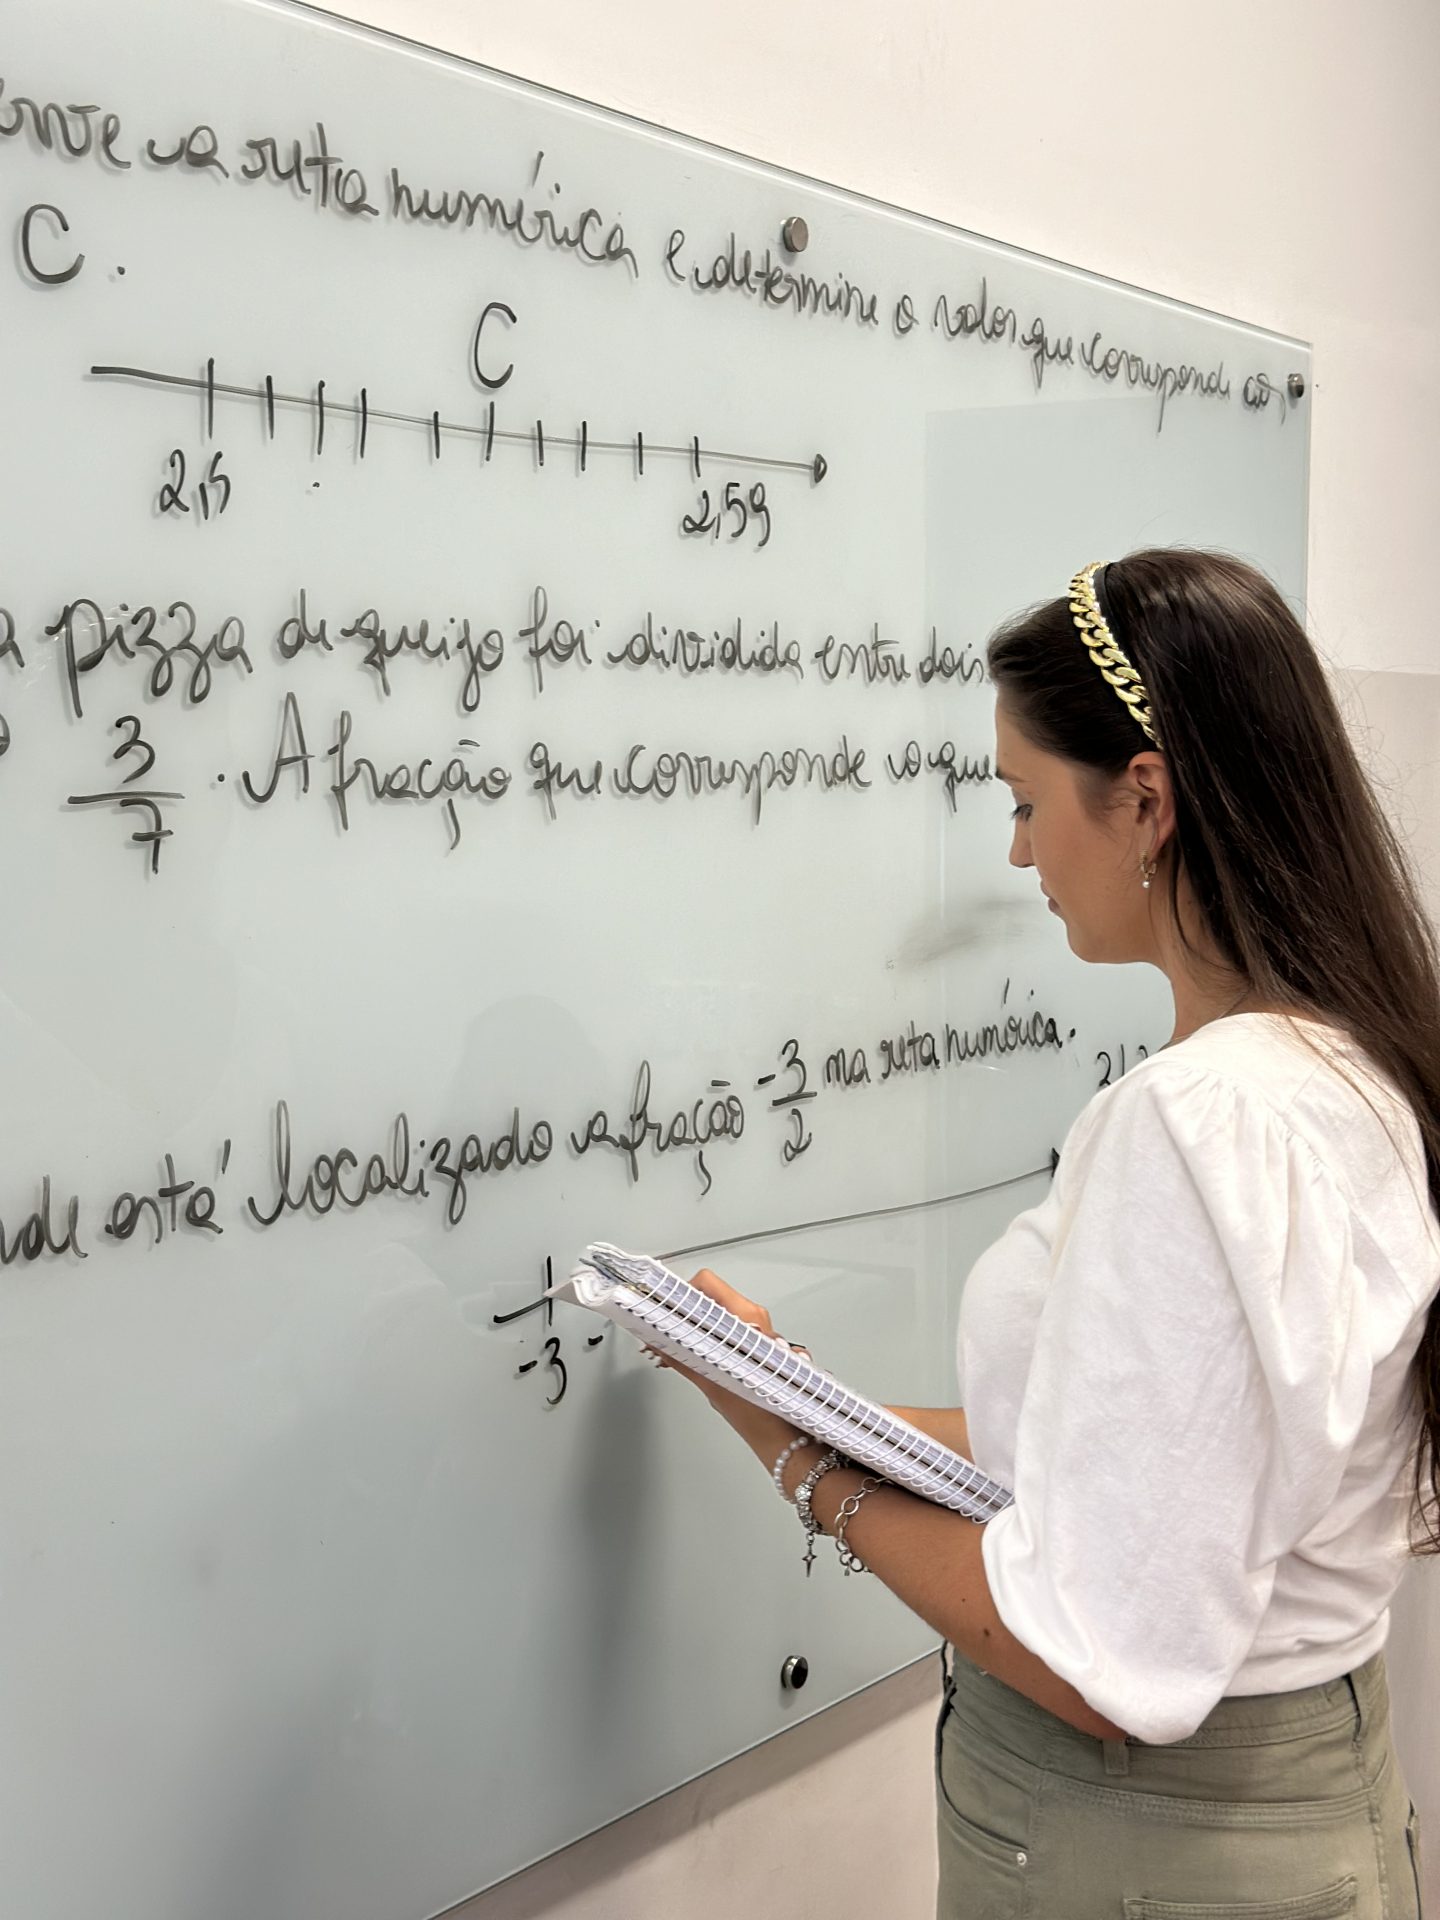 a reta numérica e determine o valor que corresponde ao
C.
C
2,5 2,59
pizza de queijo foi dividida entre dois
3/7. A fração que corresponde o que
está localizado a fração -3/2 na reta numérica.
-3 -